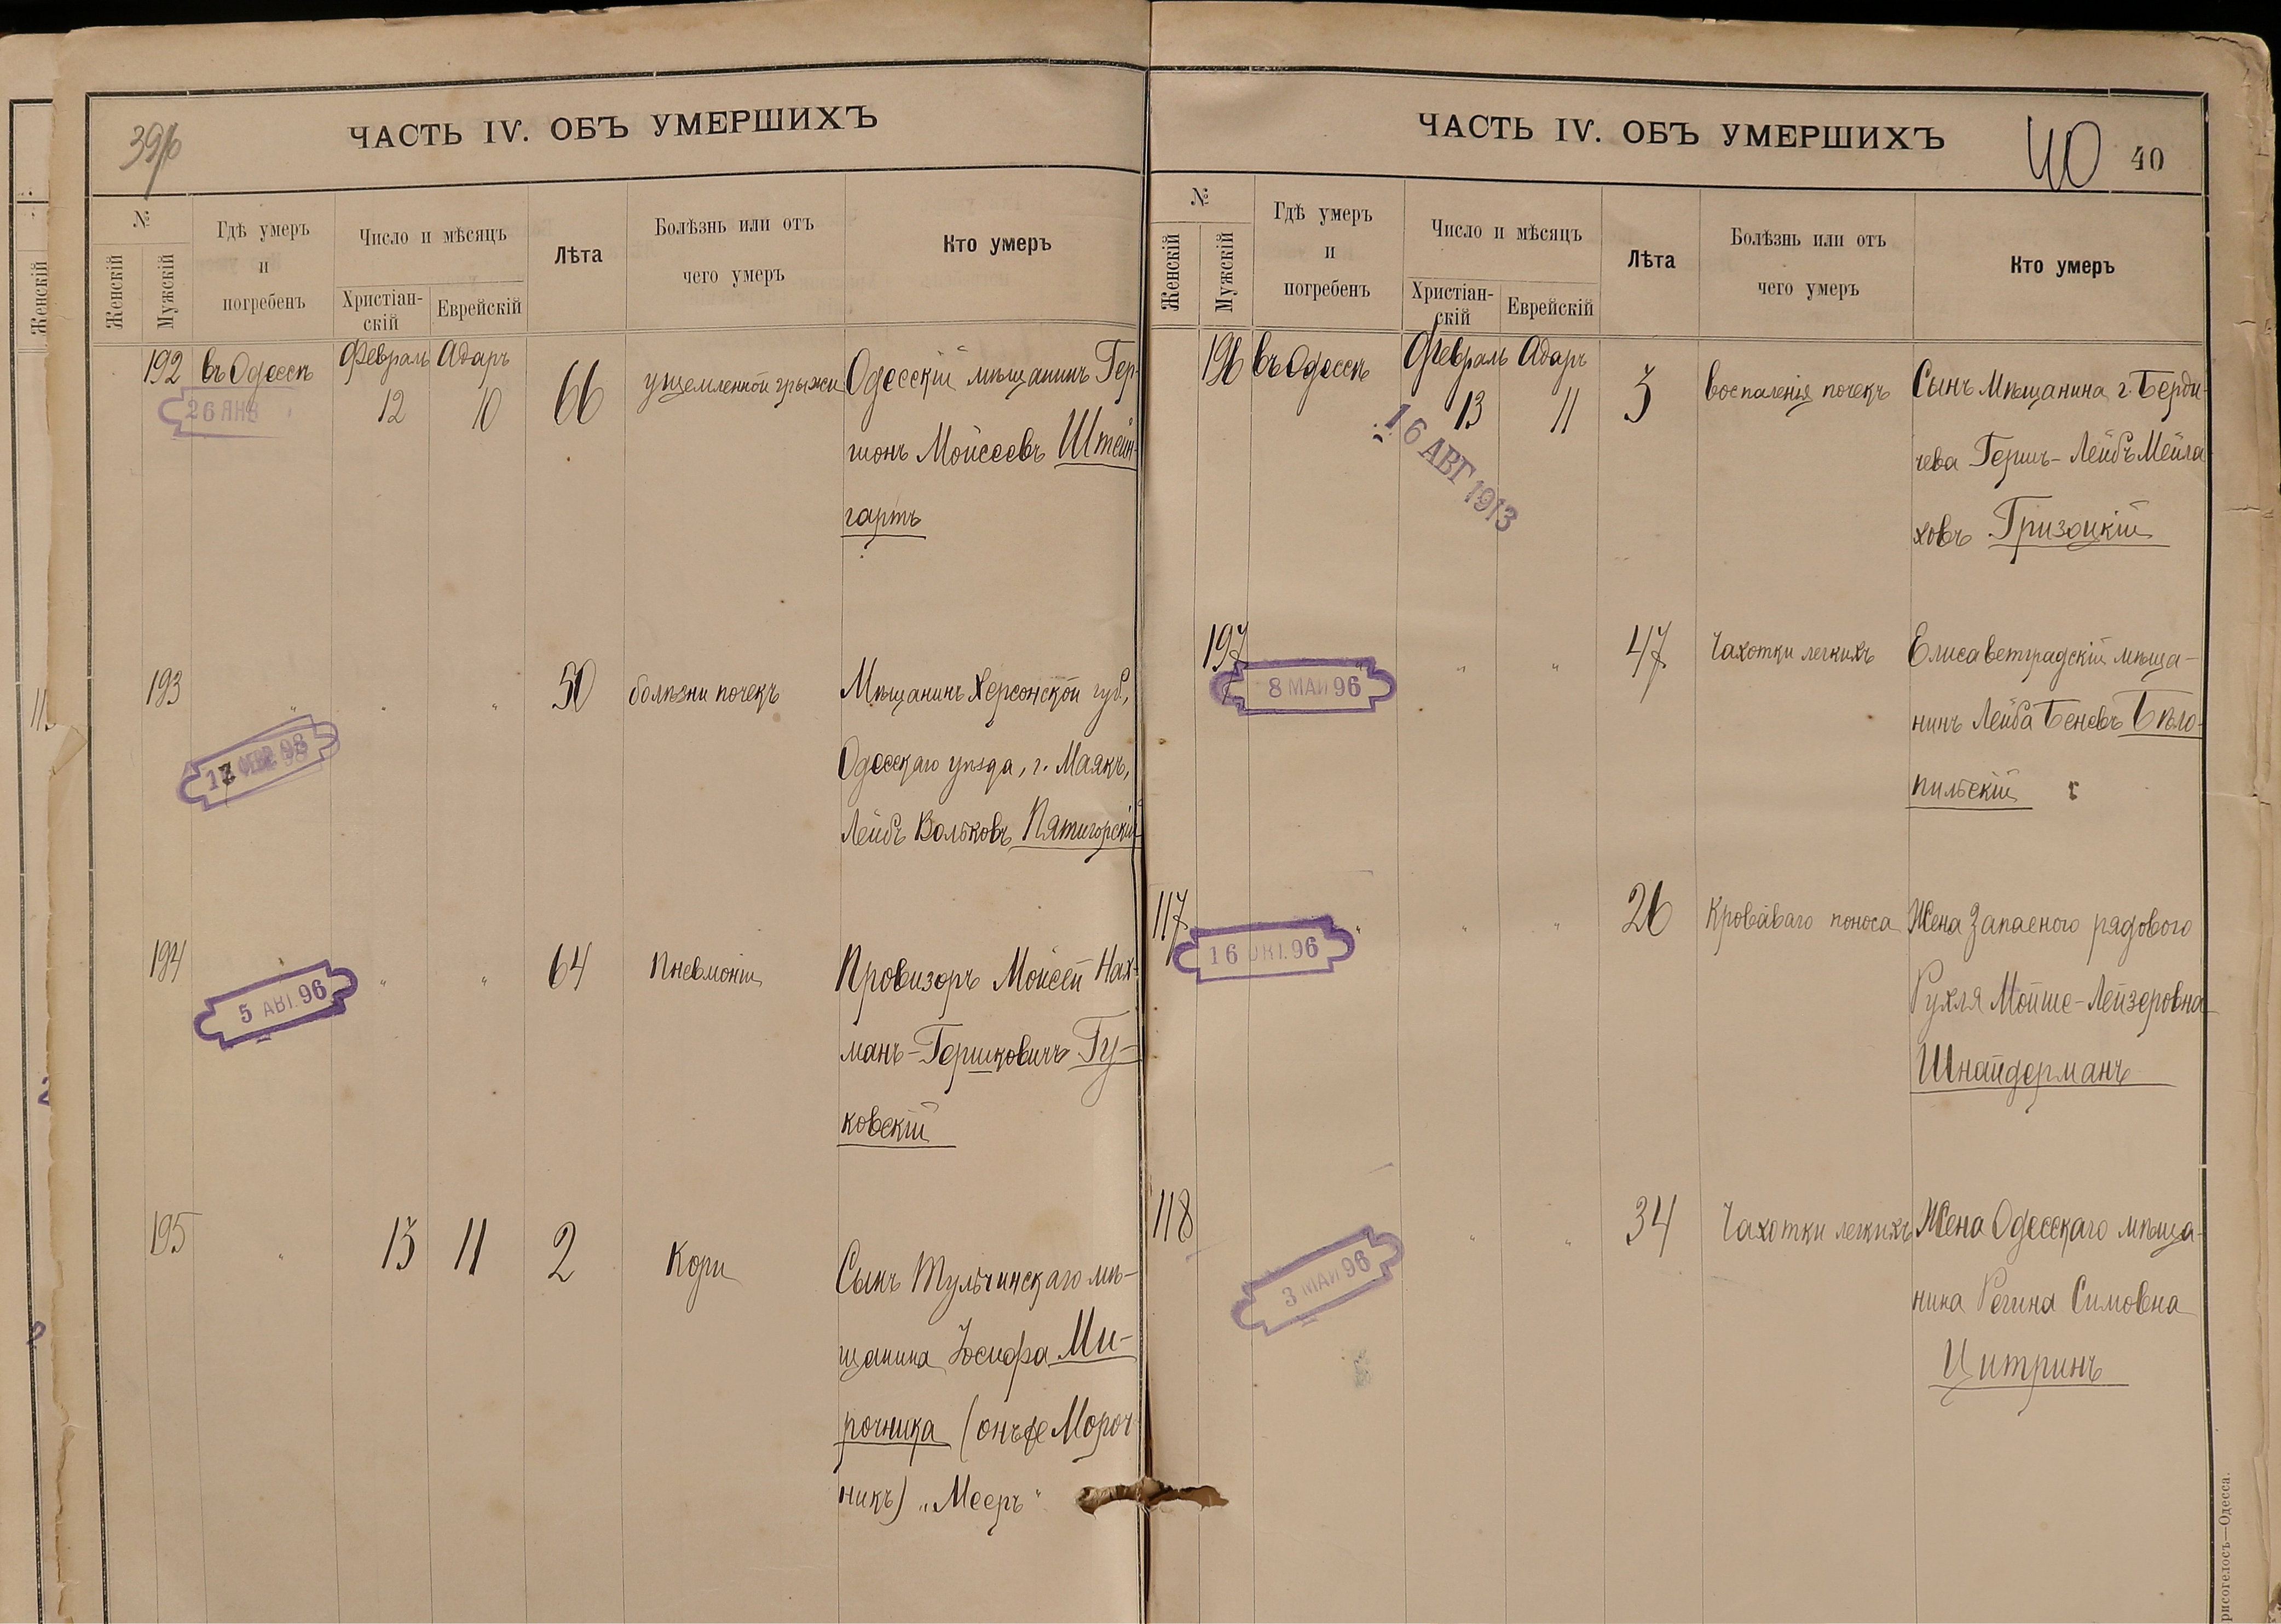 39/б
ЧАСТЬ IV. ОБЪ УМЕРШИХЪ
№
Женскій
Мужскій
Гдѣ умеръ
и
погребенъ
Число и мѣсяцъ
Христіан-
скій
Еврейскій
Лѣта
Болѣзнь или отъ
чего умеръ
Кто умеръ
192 въ Одессѣ Февраль Адаръ
12 10 66 ущемленной грыжи
Одесскій мѣщанинъ Гер-
шонъ Мойсеевъ Штейн-
гартъ
193 " " " 50 болѣзни почекъ
Мѣщанинъ Херсонской губ,
Одесскаго уѣзда, г. Маякъ,
Лейбъ Вольковъ Пятигорскій
194 " " 64 Пневмоніи
5 АВГ. 96
Провизоръ Мойсей Нах-
манъ-Гершковичъ Гу-
ковскій
195 " 13 11 2 Кори
Сынъ Тульчинскаго мѣ-
щанина Іосифа Ми-
рочника (онъ же Мороч-
никъ) „Мееръ"
ЧАСТЬ IV. ОБЪ УМЕРШИХЪ
40
40
№
Женскій
Мужскій
Гдѣ умеръ
и
погребенъ
Число и мѣсяцъ
Христіан-
скій
Еврейскій
Лѣта
Болѣзнь или отъ
чего умеръ
Кто умеръ
196 въ Одессѣ Февраль Адаръ
13 11 3 воспаленія почекъ
16 АВГ 1913
Сынъ Мѣщанина г. Берди-
чева Гершъ-Лейбъ Мейла
ховъ Гризоцкій
197 " " " 47 Чахотки легкихъ
8 МАЙ 96
Елисаветградскій мѣща-
нинъ Лейба Беневъ Бѣло-
пильскій
117 " " " 26 Кроваваго поноса
16 ОКТ. 96
Жена Запаснаго рядового
Рухля Мойше-Лейзеровна
Шнайдерманъ
118 " " 34 Чахотки легкихъ
3 МАЙ 96
Жена Одесскаго мѣща-
нина Регина Симовна
Цитринъ
Одесса.